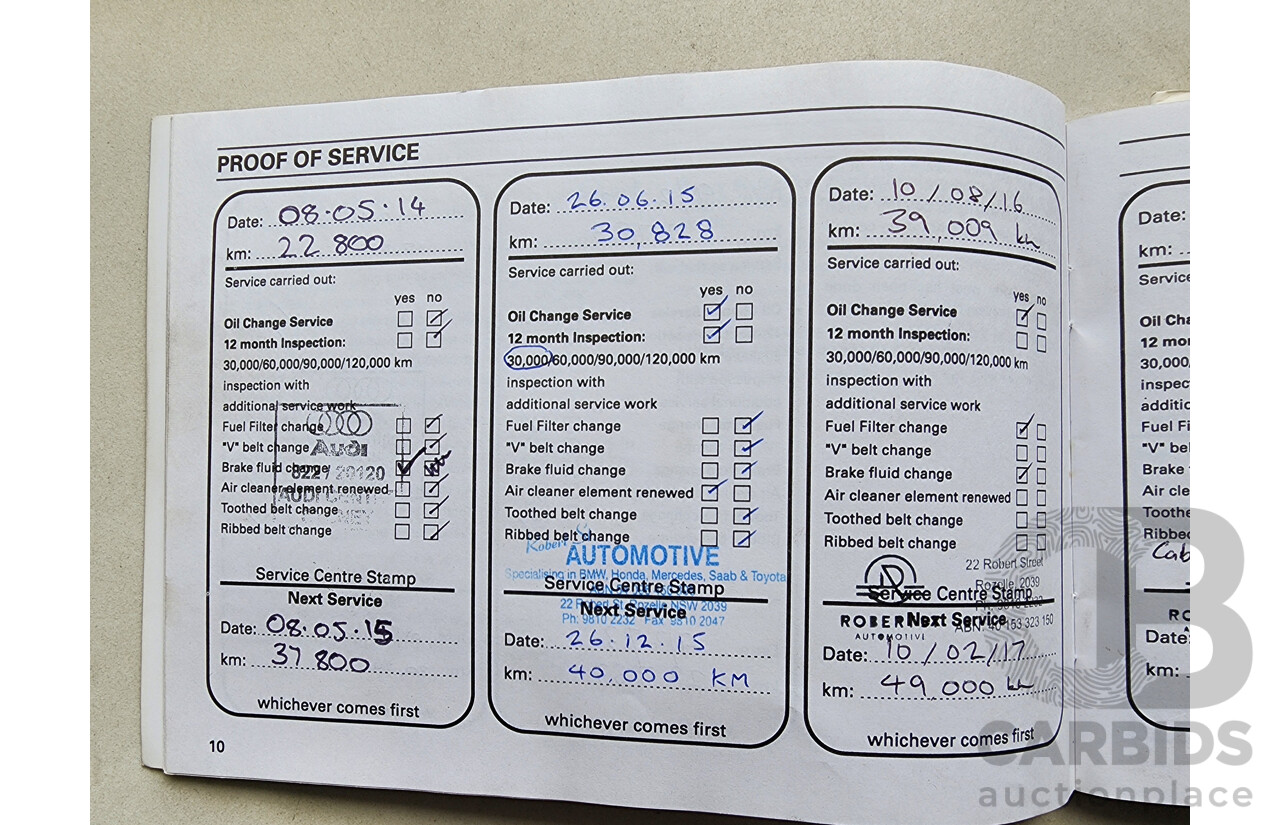 PROOF OF SERVICE
Date: 08.05.14
km: 22 800
Service carried out:
yes no
Oil Change Service
12 month Inspection:
30,000/60,000/90,000/120,000 km
inspection with
additional service work
Fuel Filter change
"V" belt change
Audi
Brake fluid change
822 / 20120
Air cleaner element renewed
AUDI CENTRE
Toothed belt change
Ribbed belt change
Service Centre Stamp
Next Service
Date: 08.05.15
km: 37 800
whichever comes first
10
Date: 26.06.15
km: 30,828
Service carried out:
yes no
Oil Change Service
12 month Inspection:
30,000/60,000/90,000/120,000 km
inspection with
additional service work
Fuel Filter change
"V" belt change
Brake fluid change
Air cleaner element renewed
Toothed belt change
Ribbed belt change
Robert St
AUTOMOTIVE
Specialising in BMW, Honda, Mercedes, Saab & Toyota
Service Centre Stamp
22 Robert St, Rozelle NSW 2039
Next Service
Ph: 9810 2232 Fax 9810 2047
Date: 26.12.15
km: 40,000 KM
whichever comes first
Date: 10/08/16
km: 39,009 km
Service carried out:
yes no
Oil Change Service
12 month Inspection:
30,000/60,000/90,000/120,000 km
inspection with
additional service work
Fuel Filter change
"V" belt change
Brake fluid change
Air cleaner element renewed
Toothed belt change
Ribbed belt change
22 Robert Street
Rozelle 2039
Service Centre Stamp
Ph: 9810 2232
ROBER
Next Service
ABN: 40 153 323 150
AUTOMOTIVE
Date: 10/02/17
km: 49 000 km
whichever comes first
Date:
km:
Service
Oil Cha
12 mon
30,000/
inspec
additio
Fuel Fi
"V" bel
Brake
Air cle
Toothe
Ribbed
Cab
RO
Date:
km:
CARBIDS
auctionplace